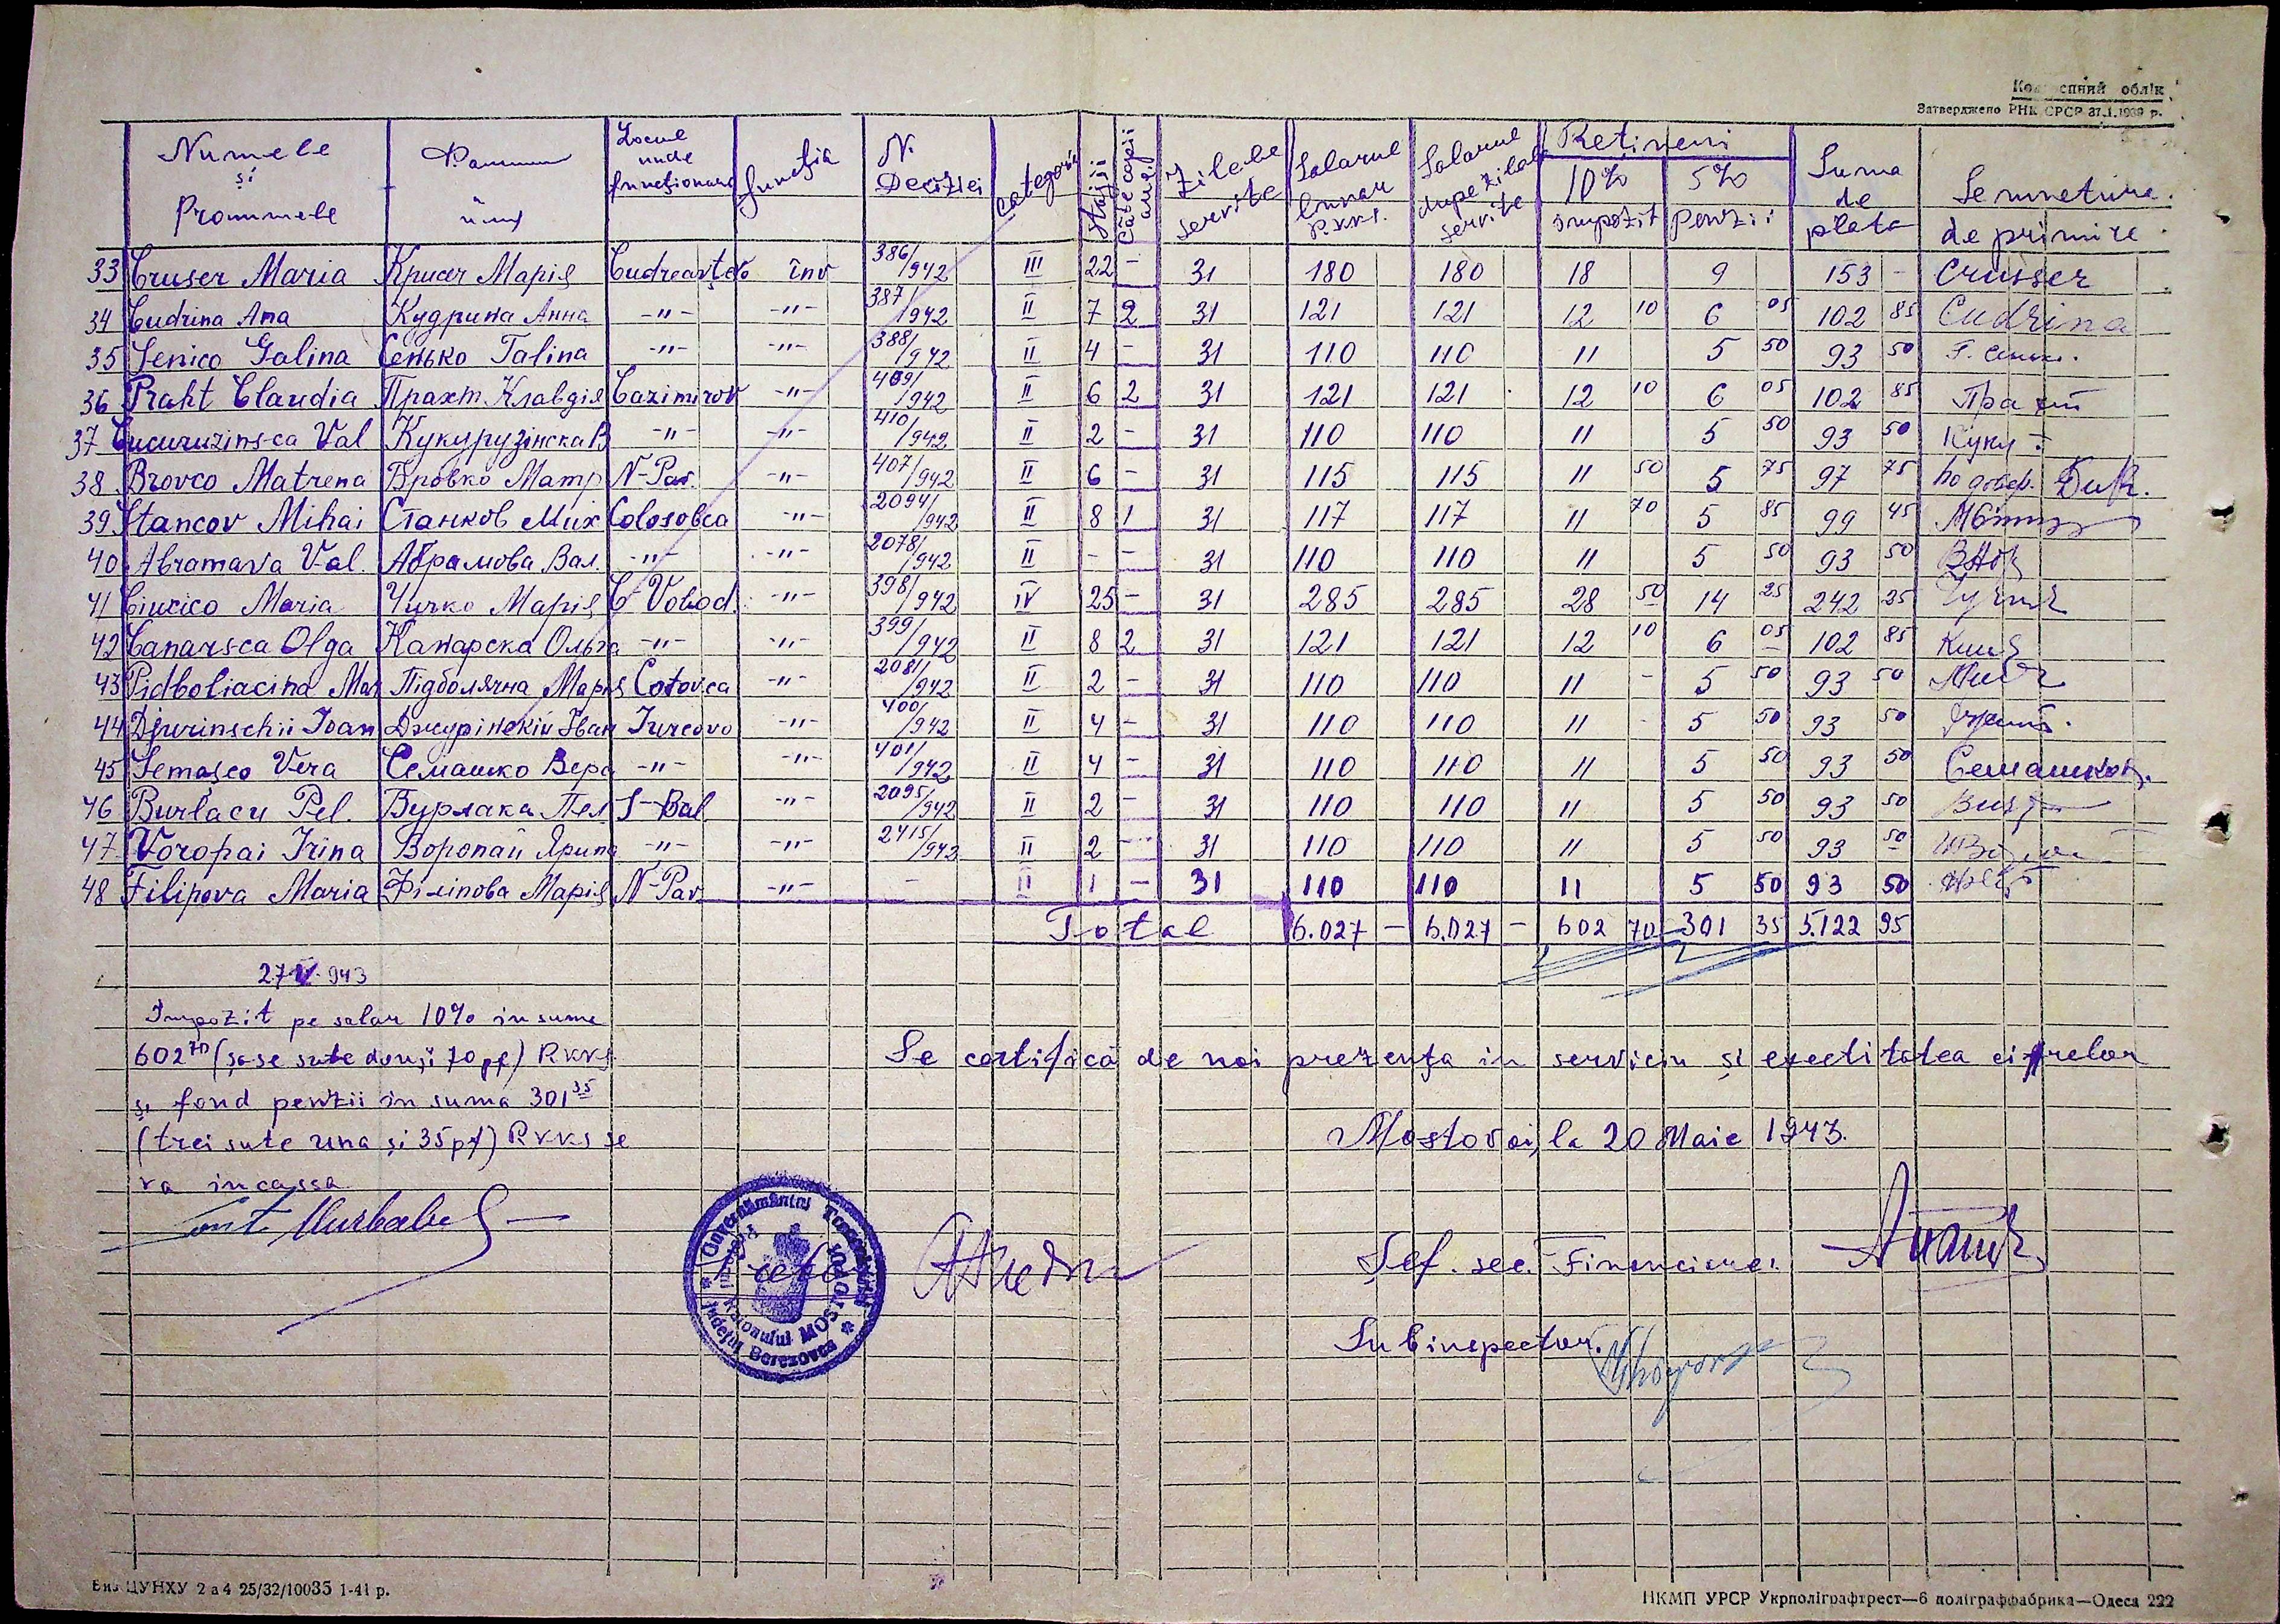 Ко спний облік
Затверджено РНК СРСР 37.1.1939 р.
Numele și Pronumele | Locul unde funcționează | funcția | N. Deciziei | categoria | Stajii | Câte copii au | Zilele servite | Salarul lunar R.K.K.S. | Salarul dupe zilele servite | Rețineri 10% impozit | 5% Penzii | Suma de plata | Semnetura de primire
33 Cruser Maria | Крисер Марія | Cudreavțevo | înv | 386/942 | III | 22 | - | 31 | 180 | 180 | 18 | 9 | 153 - | Crusser
34 Cudrina Ana | Кудрина Анна | -"- | -"- | 387/942 | II | 7 | 2 | 31 | 121 | 121 | 12 10 | 6 05 | 102 85 | Cudrina
35 Senico Galina | Сенько Галіna | -"- | -"- | 388/942 | II | 4 | - | 31 | 110 | 110 | 11 | 5 50 | 93 50
36 Praht Claudia | Прахт Клавдія | Cazimirov | -"- | 409/942 | II | 6 | 2 | 31 | 121 | 121 | 12 10 | 6 05 | 102 85 | Прахт
37 Cucuruzinsca Val | Кукурузінска В | -"- | -"- | 410/942 | II | 2 | - | 31 | 110 | 110 | 11 | 5 50 | 93 50 | Куку
38 Brovco Matrena | Бровко Матр | N-Pav. | -"- | 407/942 | II | 6 | - | 31 | 115 | 115 | 11 50 | 5 75 | 97 75 | по довер.
39 Stancov Mihai | Станков Мих | Colosovca | -"- | 2094/942 | II | 8 | 1 | 31 | 117 | 117 | 11 70 | 5 85 | 99 45
40 Abramava Val. | Абрамова Вал. | -"- | -"- | 2078/942 | II | - | - | 31 | 110 | 110 | 11 | 5 50 | 93 50
41 Ciucico Maria | Чучко Марія | C-Vovod. | -"- | 398/942 | IV | 25 | - | 31 | 285 | 285 | 28 50 | 14 25 | 242 25
42 Canarsca Olga | Канарска Ольга | -"- | -"- | 399/942 | II | 8 | 2 | 31 | 121 | 121 | 12 10 | 6 05 | 102 85
43 Pidboliacina Mar | Підболячна Марія | Cotovca | -"- | 2081/942 | II | 2 | - | 31 | 110 | 110 | 11 - | 5 50 | 93 50
44 Djurinschii Ioan | Джурінскій Іван | Iurcovo | -"- | 400/942 | II | 4 | - | 31 | 110 | 110 | 11 - | 5 50 | 93 50
45 Semașco Vera | Семашко Вера | -"- | -"- | 401/942 | II | 4 | - | 31 | 110 | 110 | 11 | 5 50 | 93 50 | Семашков
46 Burlacu Pel. | Бурлака Пел | S-Bal | -"- | 2095/942 | II | 2 | - | 31 | 110 | 110 | 11 | 5 50 | 93 50
47 Voropai Irina | Воропай Ярина | -"- | -"- | 2415/943 | II | 2 | - | 31 | 110 | 110 | 11 | 5 50 | 93 50
48 Filipova Maria | Філіпова Марія | N-Pav. | -"- | - | II | 1 | - | 31 | 110 | 110 | 11 | 5 50 | 93 50
Total | 6.027 - | 6.027 - | 602 70 | 301 35 | 5.122 95
27 V 943
Impozit pe salar 10% in suma
602 70 (șase sute două și 70 pf) RKKS.
și fond penzii in suma 301 35
(trei sute una și 35 pf) RKKS se
va incassa
Cont.
Se certifică de noi prezența in serviciu și exectitatea cifrelor
Mostovoi, la 20 Maie 1943.
Pretor
Guvernământul Transnistriei
Județul Berezovca
Pretura Raionului MOSTOVOI
Șef. sec. Financiare.
Subinspector.
Вид ЦУНХУ 2 а 4 25/32/10035 1-41 р.
НКМП УРСР Укрполіграфтрест—6 поліграффабрика—Одеса 222